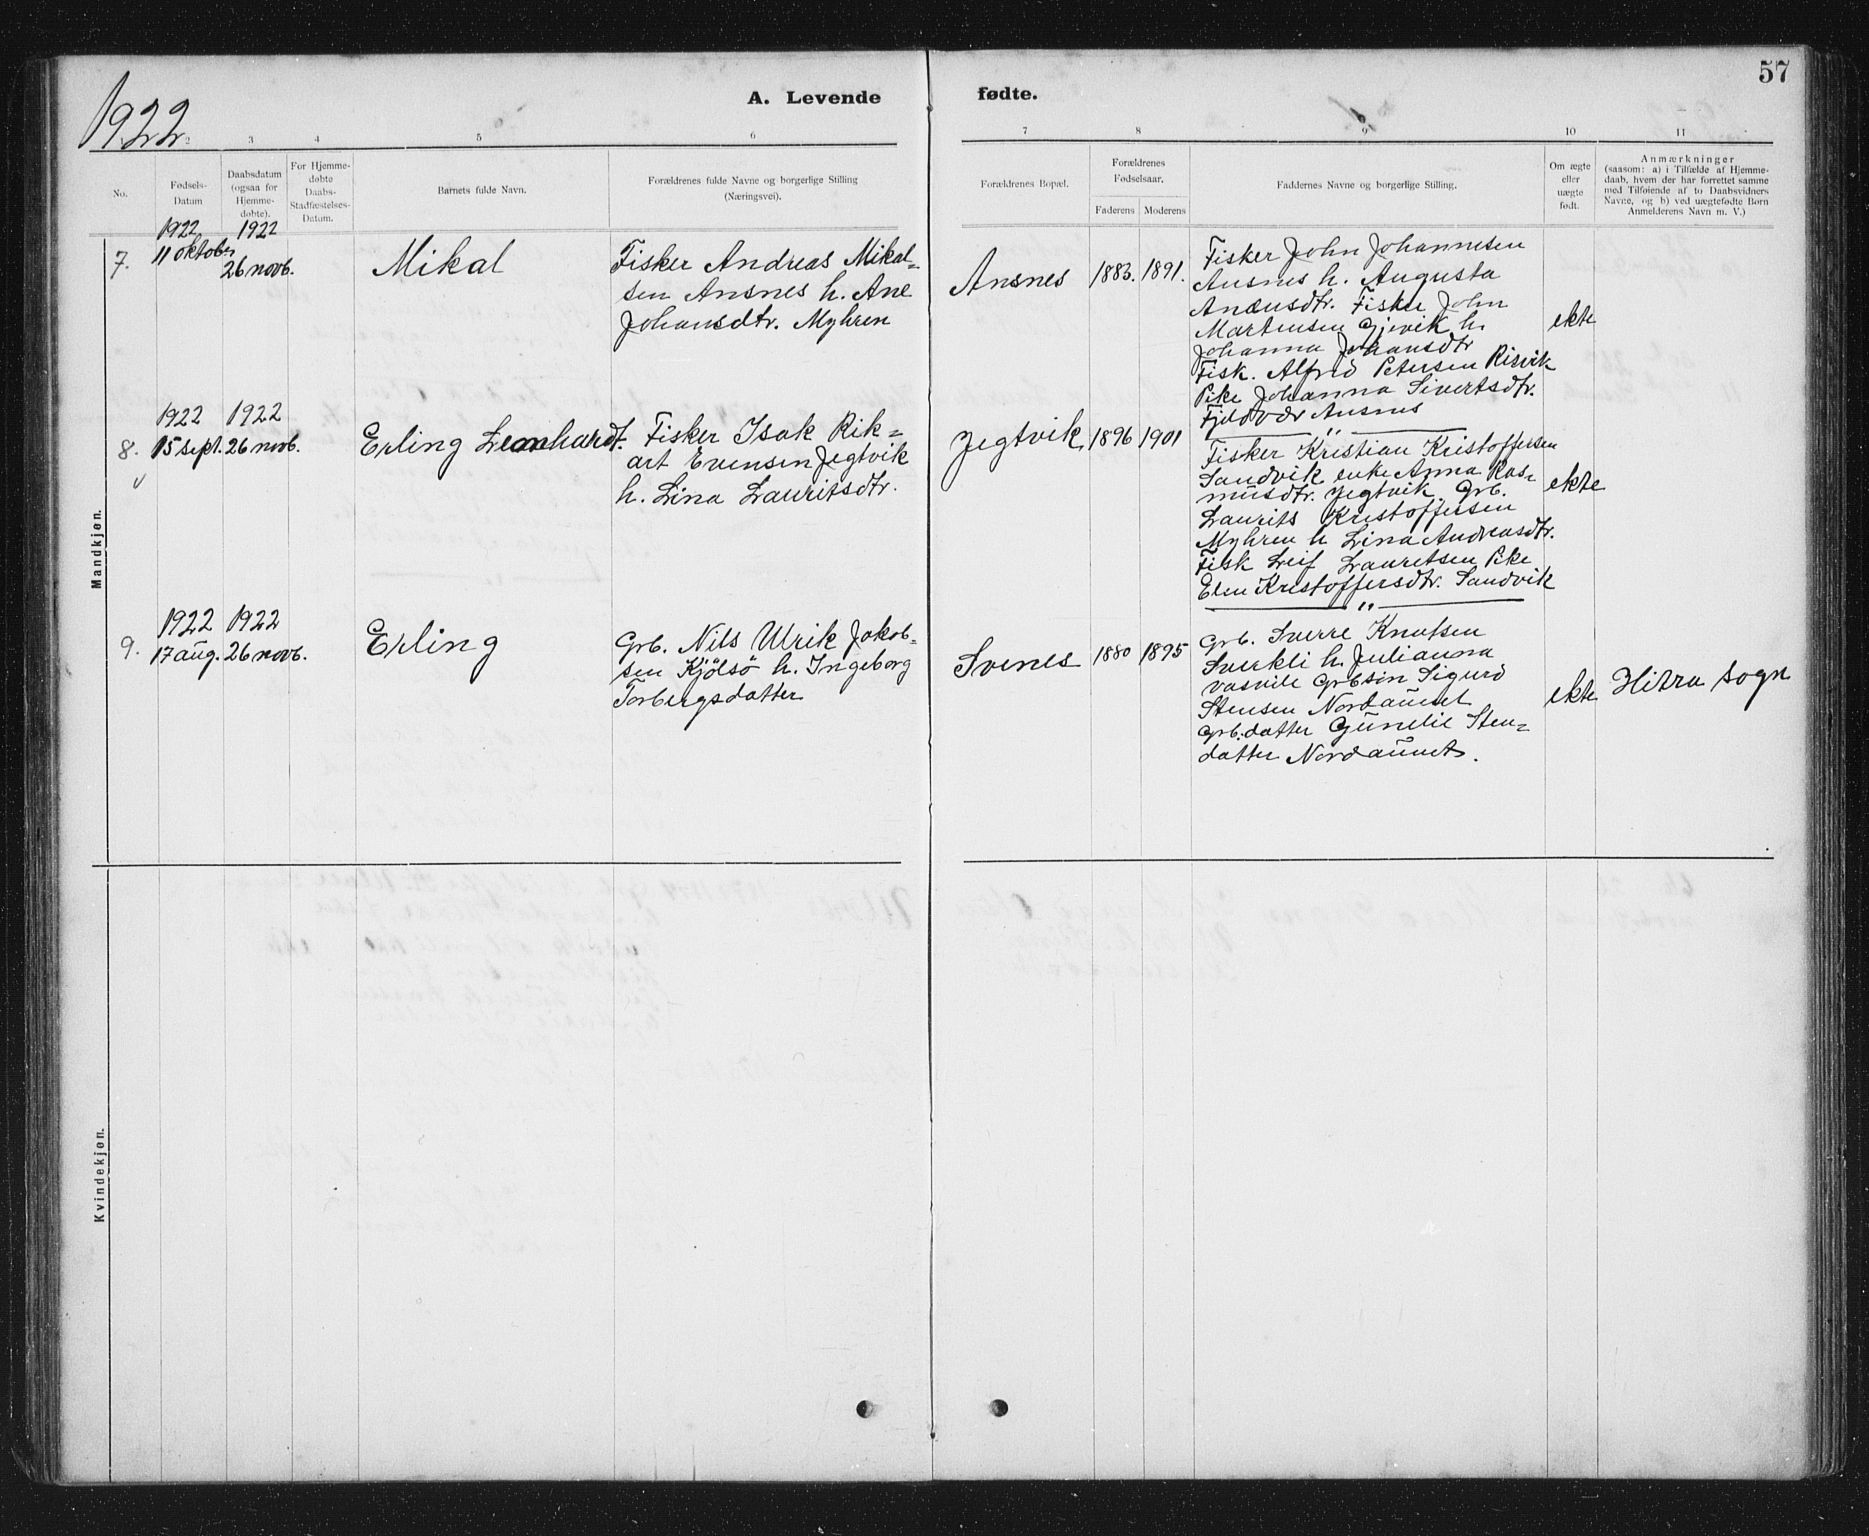 57
1922
A. Levende fødte.
2 3 4 5 6 7 8 9 10 11
No.
Fødsels-
Datum
Daabsdatum
(ogsaa for
Hjemme-
døbte).
For Hjemme-
døbte
Daabs-
Stadfæstelses-
Datum.
Barnets fulde Navn.
Forældrenes fulde Navne og borgerlige Stilling
(Næringsvei).
Forældrenes Bopæl.
Forældrenes
Fødselsaar.
Faderens Moderens
Faddernes Navne og borgerlige Stilling.
Om ægte
eller
uægte
født.
Anmærkninger
(saasom: a) i Tilfælde af Hjemme-
daab, hvem der har forrettet samme
med Tilføiende af to Daabsvidners
Navne, og b) ved uægtefødte Børn
Anmelderens Navn m. V.)
Mandkjøn.
7.
1922
11 oktober
1922
26 novb.
Mikal
Fisker Andreas Mikal-
sen Ansnes h. Ane
Johansdtr. Myhren
Ansnes
1883. 1891.
Fisker John Johannesen
Ansnes h. Augusta
Fisker John
Martensen Gjevik h.
Johanna Johansdtr
Fisk. Alfred Petersen Risvik
Pike Johanna Sivertsdtr.
Fjeldvær Ansnes
ekte
8.
1922
15 sept.
1922
26 novb.
Erling Leonhardt.
Fisker Isak Rik=
art Evensen Jegtvik
h. Lina Lauritsdtr.
Jegtvik
1896 1901
"
Fisker Kristian Kristoffersen
Sandvik enke Anna Ras-
musdtr. Jegtvik. Grb.
Laurits Kristoffersen
Myhren h Lina Andreasdtr.
Fisk Leif Lauritsen Pike
Elen Kristoffersdtr. Sandvik
ekte
9.
1922
17 aug.
1922
26 novb.
Erling
Grb. Nils Ulrik Jakob-
sen Kjölsö h. Ingeborg
Torbergsdatter
Svenes
1880 1895
"
Grb. Sverre Knutsen
Sverkli h. Julianna
Grbsön Sigurd
Stensen Nordaunet
Grb. datter Gunelie Sten=
datter Nordaunet.
ekte
Hitra sogn
Kvindekjøn.